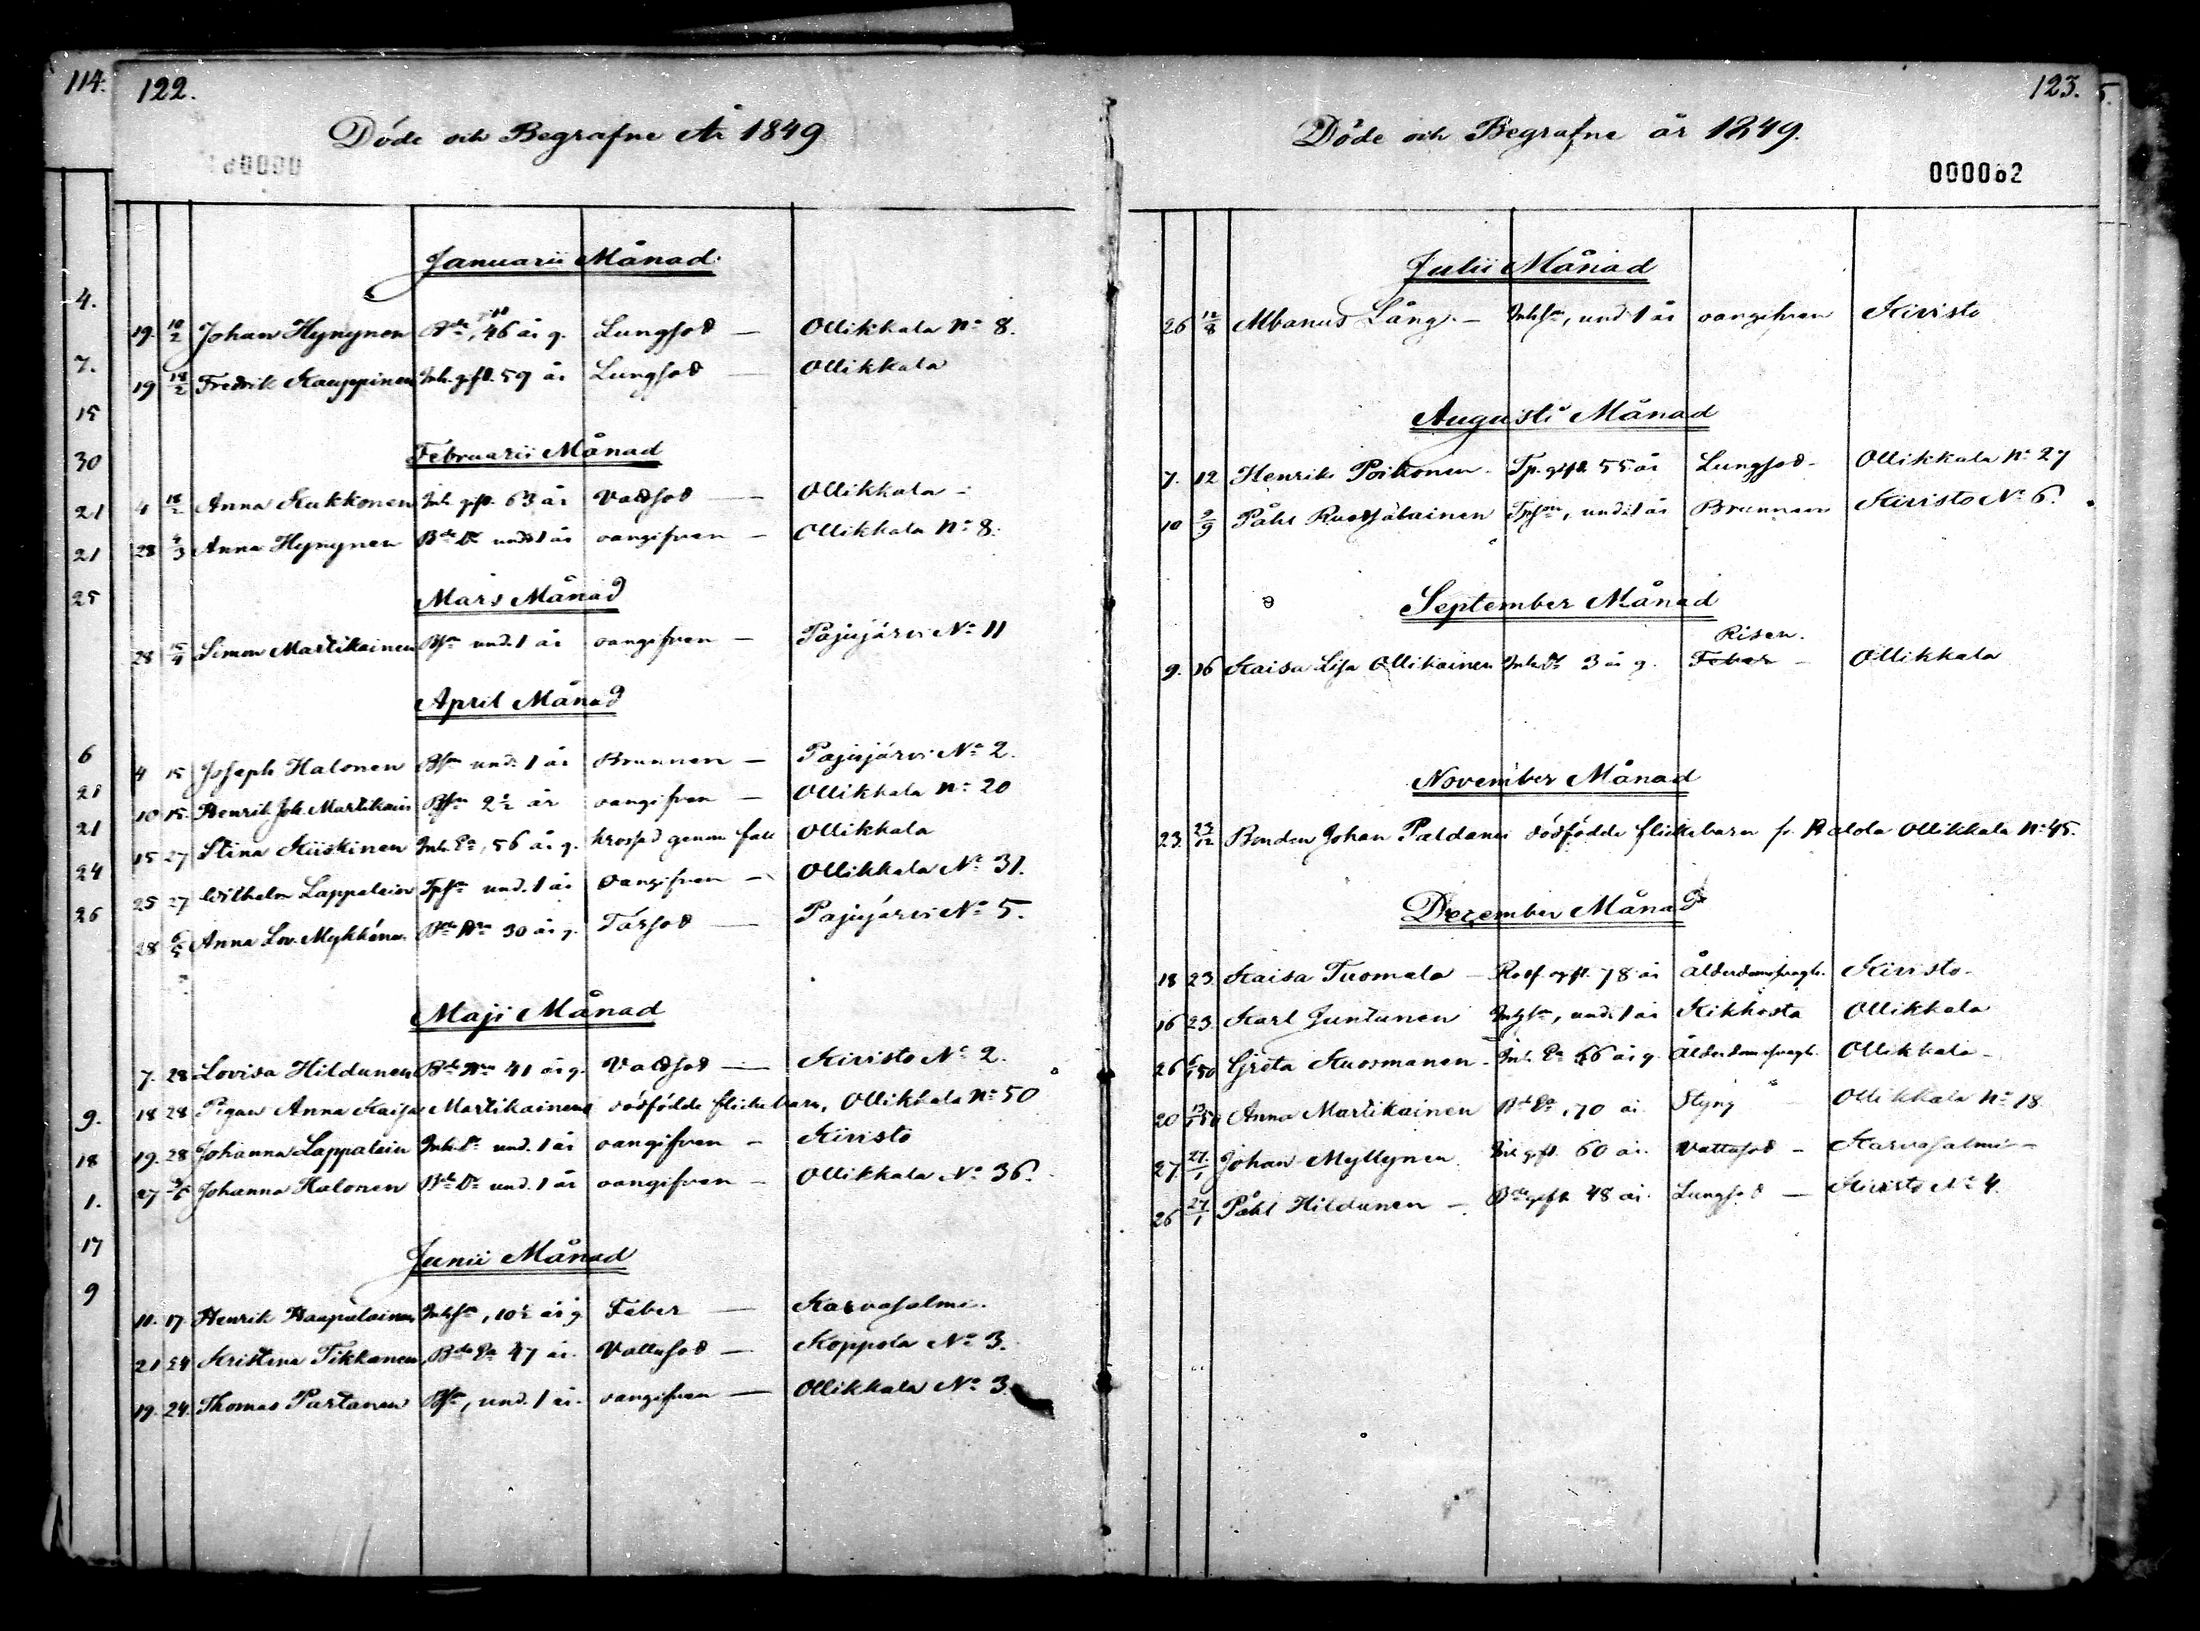 114.
4.
7.
15
30
21
21
25
6
21
24
26
9.
18
1.
17
9
122.
Döde och Begrafne År 1849
Januarii Månad.
19. 10/2 Johan Hynynen Bde, gift 46 år g. Lungsot — Ollikkala No 8.
19 18/2 Fredrik Kauppinen Inh. gift. 59 år Lungsot — Ollikkala
Februarii Månad
4 18/2 Anna Kukkonen Inh. gift. 63 år Vattsot — Ollikkala -
28 4/3 Anna Hynynen Bde Dr und. 1 år oangifven — Ollikkala No 8.
Mars Månad
28 15/4 Simon Martikainen Bson und. 1 år oangifven — Pajujärvi No 11
April Månad
4 15 Joseph Halonen Bson und. 1 år Brunnen — Pajujärvi No 2.
10 15. Henrik Joh. Martikain Bson 2½ år oangifven — Ollikkala No 20
15 27 Stina Kiiskinen Inh. Ea, 56 år g. krossad genom fall Ollikkala
25 27 Wilhelm Lappalain Tpson und. 1 år oangifven — Ollikkala No 31.
28 6/5 Anna Lov. Mykkäne. Bde Hru 30 år g. Tärsot — Pajujärvi No 5.
Maji Månad
7. 28 Lovisa Hildunen Bde Hru 41 år g. Vattsot — Kiristo No 2.
18 28 Pigan Anna Kaisa Martikainens dödfödde flickebarn, Ollikkala No 50
19. 28 Johanna Lappalain Inh. Dr und. 1 år oangifven — Kiristo
27 Johanna Halonen Bde Dr und. 1 år oangifven — Ollikkala No 36.
Junii Månad
11. 17. Henrik Haapalainen Inhson, 10½ år g Feber — Karvasalmi.
21 24 Kristina Tikkanen, Bde Ea 47 år. Vattusot — Koppola No 3.
19. 24. Thomas Partanen Bson, und. 1 år. oangifven — Ollikkala No 3.
123.
Döde och Begrafne år 1849.
000062
Julii Månad
26 12/8 Albanus Lång. — Inhson, und. 1 år oangifven Kiristo
Augusti Månad
7. 12 Henrik Poikonen. Tp. gift 55 år Lungsot - Ollikkala No 27
10 2/9 Påhl Ruotsalainen Tpson, und. 1 år Brunnen Kiristo No 6.
September Månad
9. 16 Kaisa Lisa Ollikainen Inh. Dr 3 år g. Feber Risen. - Ollikkala
November Månad
23. 23/12 Bonden Johan Paldanii dödfödde flickebarn fr. Halola Ollikkala No 45.
December Månad
18 23. Kaisa Tuomala — Rotf. ogft. 78 år Ålderdomssvagh. Kiristo -
16 23. Karl Juntunen Inhson, und. 1 år Kikhosta Ollikkala
26 6/1 50 Greta Kuosmanen - Inh. Ea 66 år g. Ålderdomssvagh. Ollikkala -
20 13/1 50 Anna Martikainen Bde Ea, 70 år. Styng Ollikkala No 18
27. 27./1 Johan Myllynen Inh gift. 60 år. Vattusot - Karvasalmi -
26 27/1 Påhl Hildunen — Bde gift 48 år. Lungsot — Kiristo No 4.